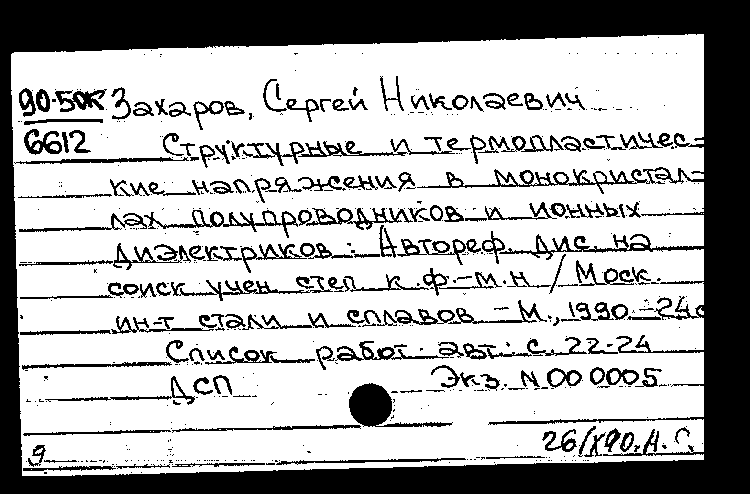 90-50K Захаров, Сергей Николаевич
6612 Структурные и термопластичес=
кие напряжения в монокристал=
лах полупроводников и ионных
диэлектриков: Автореф. дис. на
соиск учен степ к.ф.-м.н / Моск.
ин-т стали и сплавов – М., 1990.–24с
Список работ авт: с. 22-24
ДСП Экз. N00 0005
9 26/X90. А. С.